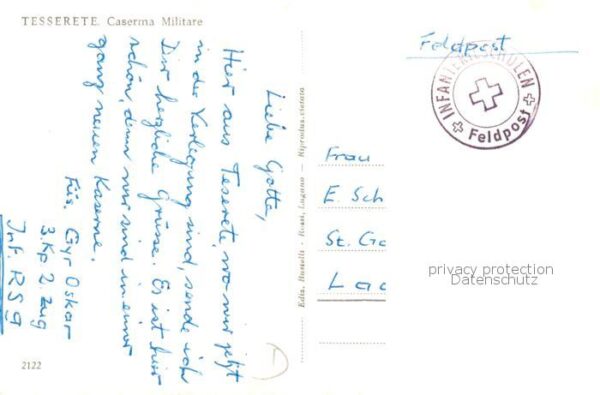 TESSERETE. Caserma Militare
Liebe Gotte,
Hier aus Teserete, wo wir jetzt
in der Verlegung sind, sende ich
Dir herzliche Grüsse. Es ist hier
schön, denn wir sind in einer
ganz neuen Kaserne.
Füs. Gyr Oskar
3. Kp 2. Zug
Inf RS 9
2122
Ediz. Rusealli - Rossi, Lugano - Riproduz. vietata
Feldpost
INFANTERIESCHULEN
Feldpost
Frau
E. Sch
St. Ga
Lac
privacy protection
Datenschutz